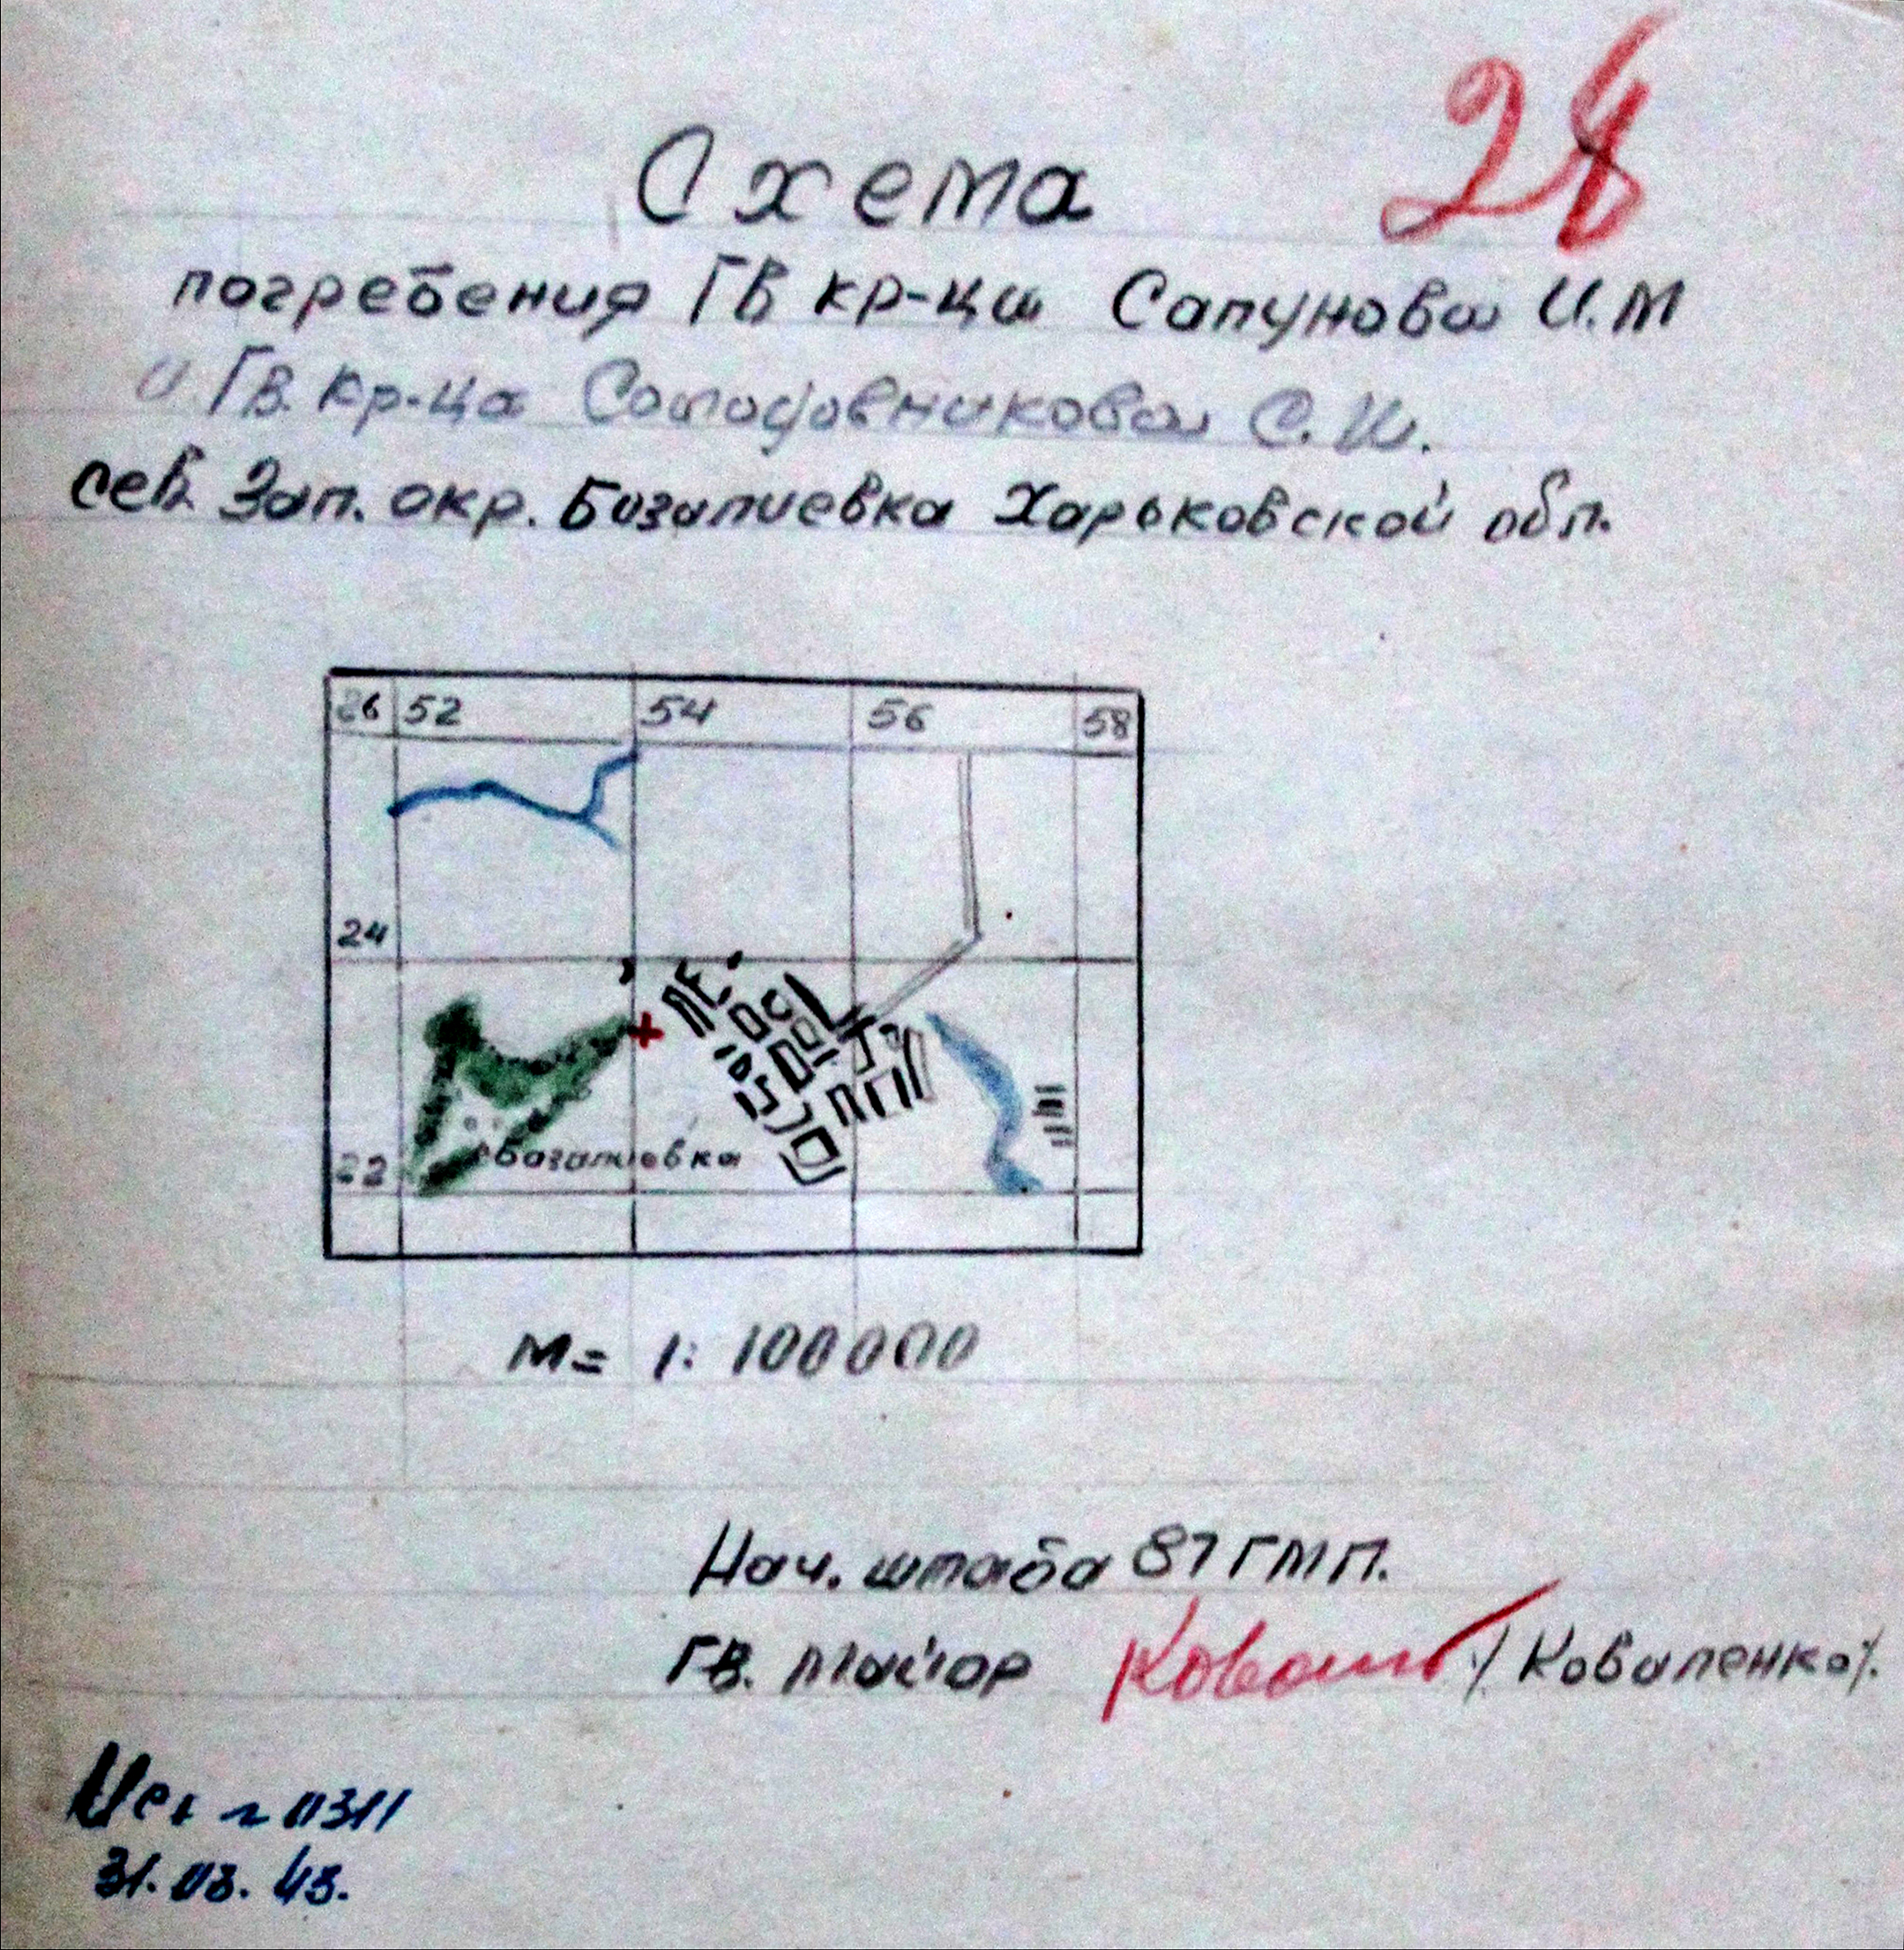 28
Схема
погребения ГВ кр-ца Сапунова И.М
и ГВ. кр-ца Солодовникова С.И.
сев. Зап. окр. Базалиевка Харьковской обл.
26 52 54 56 58
24
Базалиевка
22
М= 1: 100000
Нач. штаба 87 ГМП.
ГВ. майор /Коваленко/.
Исх № 0311
31.03.43.